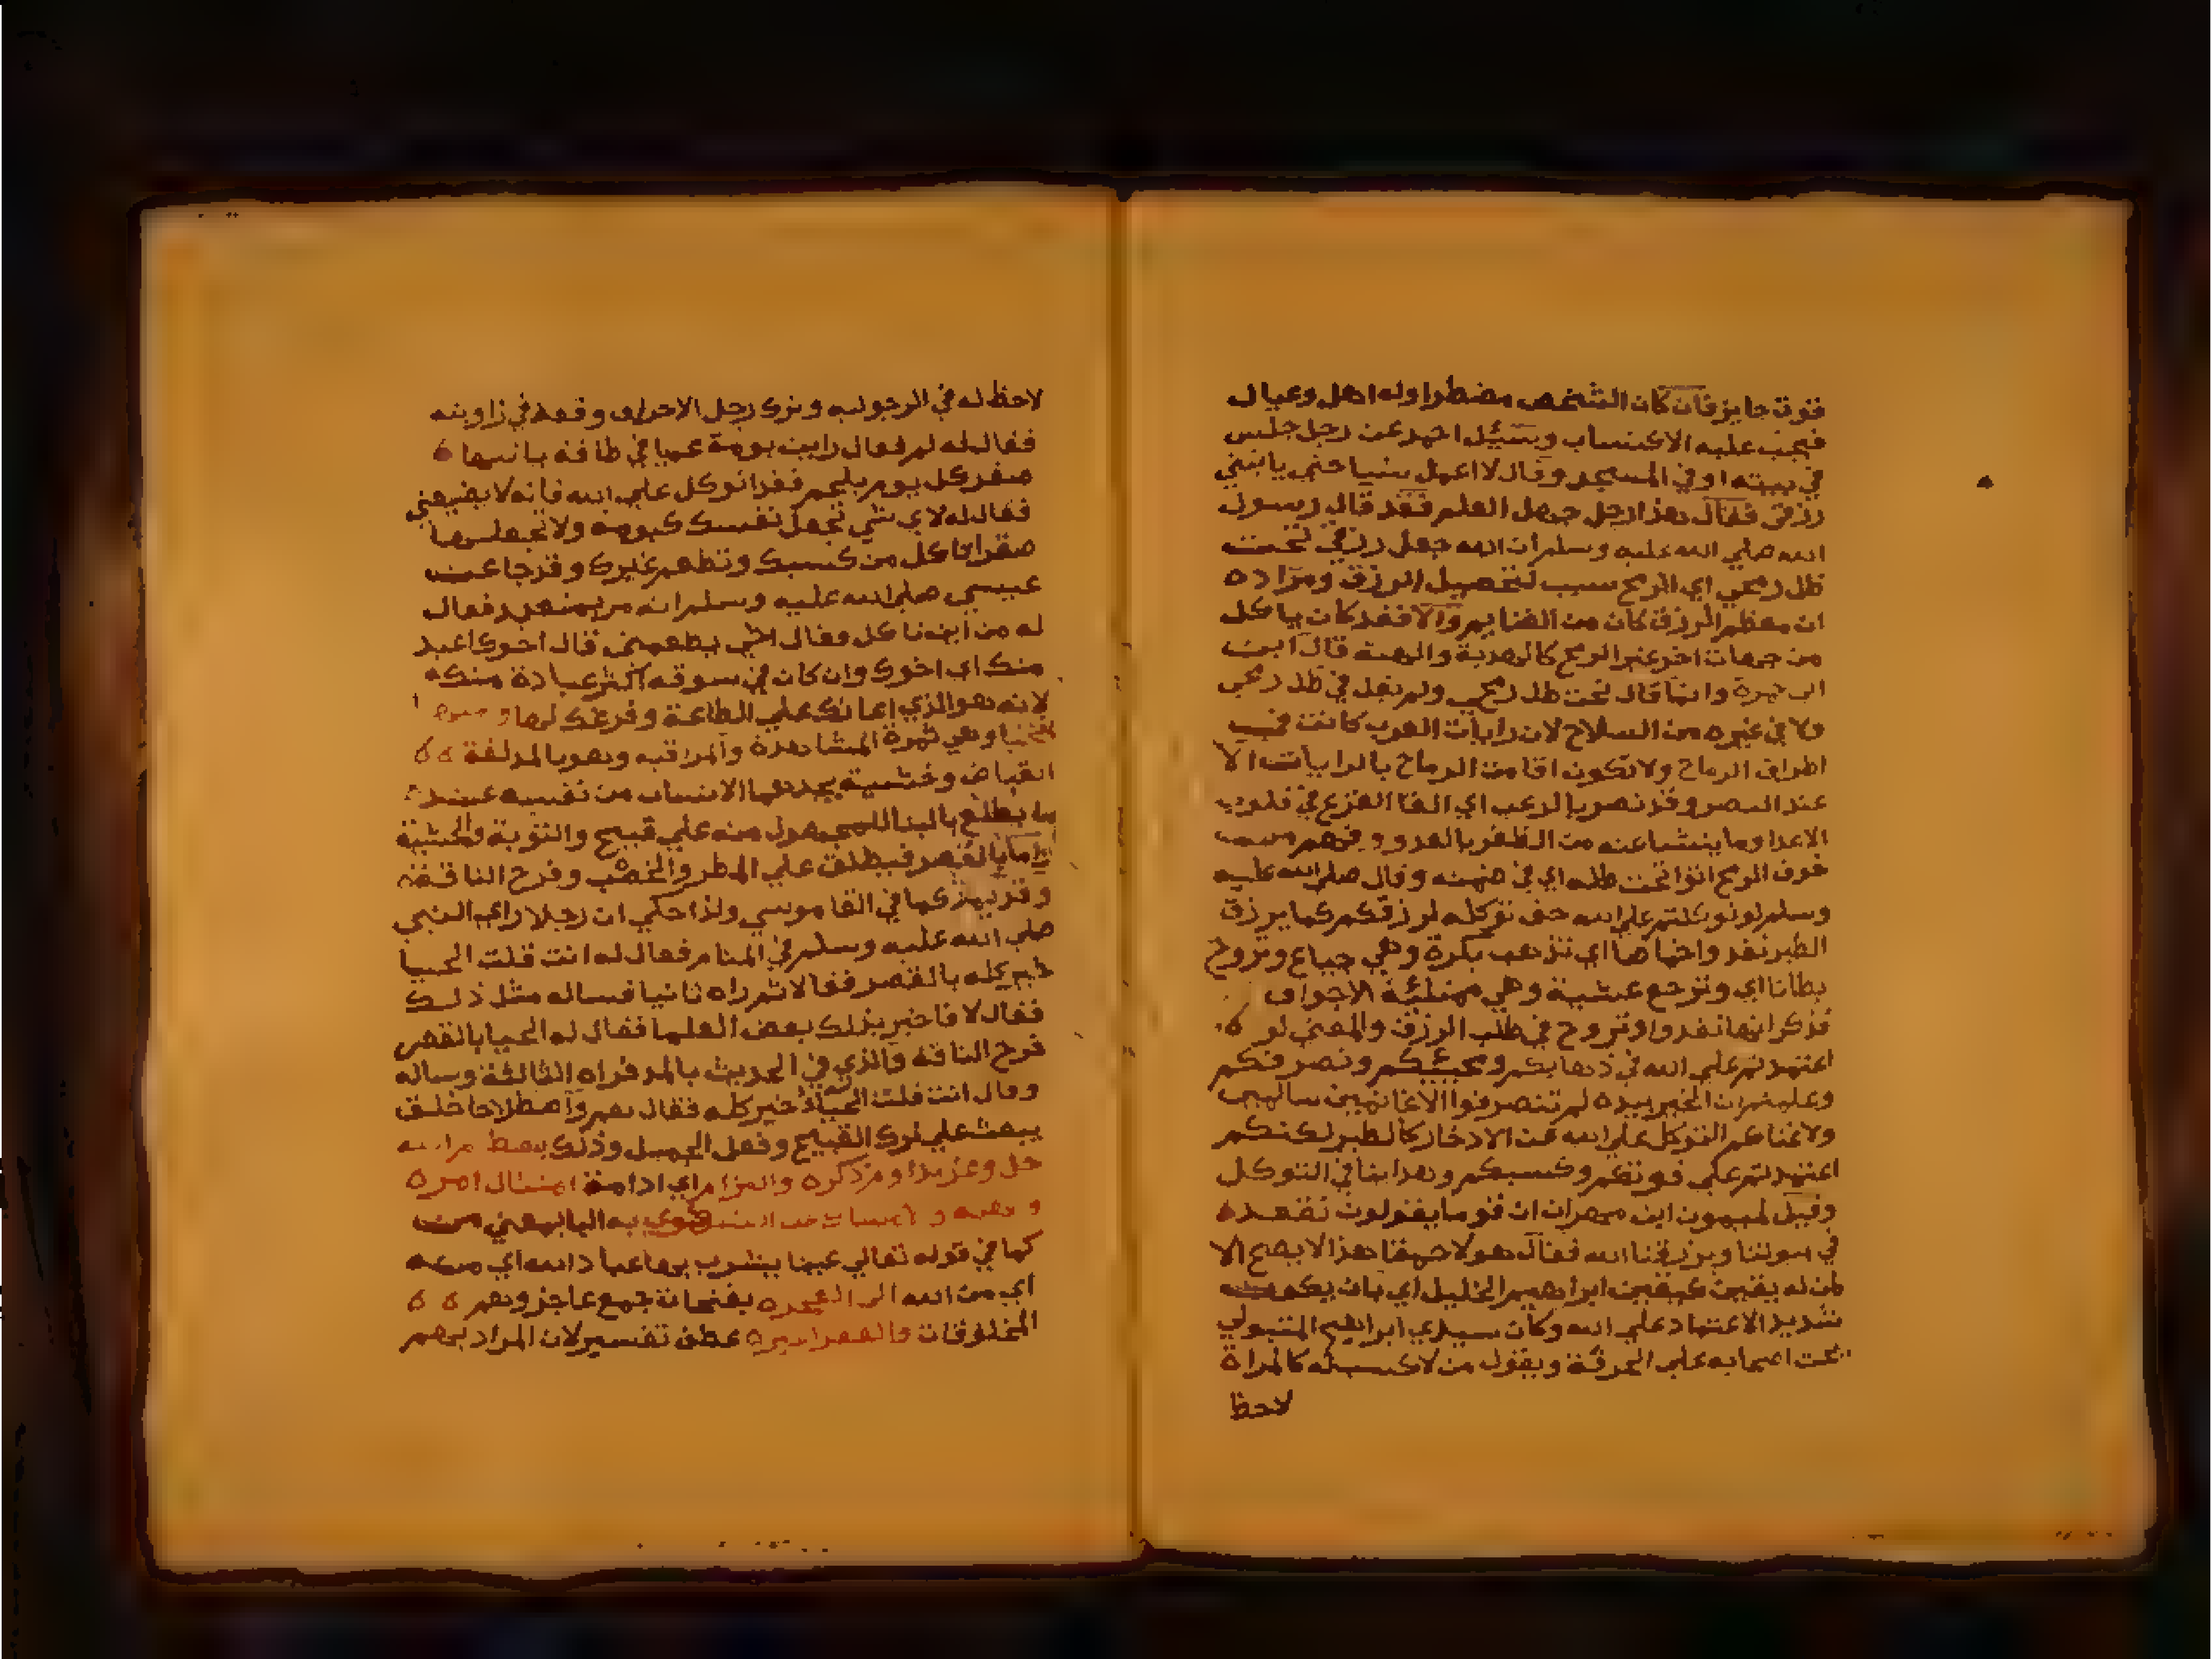 قوت جايز فان كان الشخص مضطرا وله اهل وعيال
فيجب عليه الاكتساب وسئل احمد عن رجل جلس
في بيته او في المسجد وقال لا اعمل شيا حتى ياتيني
رزقي فقال هذا رجل جهل العلم فقد قال رسول
الله صلي الله عليه وسلم ان الله جعل رزقي تحت
ظل رمحي اي الرمح سبب لتحصيل الرزق ومراده
ان معظم الرزق كان من الغنايم والا فقد كان ياكل
من جهات اخر غير الرمح كالهدية والهبة قال ابن
ابي جمرة وانما قال تحت ظل رمحي ولم يقل في ظل رمحي
ولا في غيره من السلاح لان رايات العرب كانت في
اطراف الرماح ولا تكون اقامت الرماح بالرايات الا
عند النصر وقد نصر بالرعب اي القا الفزع في قلوب
الاعدا وما ينشا عنه من الظفر بالعدو
خوف الرمح اتوا تحت ظله اي في ضمنه وقال صلي الله عليه
وسلم لو توكلتم علي الله حق توكله لرزقكم كما يرزق
الطير تغدوا خماصا اي تذهب بكرة وهي جياع وتروح
بطانا اي وترجع عشية وهي ممتلئة الاجواف
فذكر انها تغدوا وتروح في طلب الرزق والمعني لو
اعتمدتم علي الله في ذهابكم ومجيئكم وتصرفكم
وعلمتم ان الخير بيده لم تنصرفوا الا غانمين سالمين
ولاغناكم التوكل علي الله عن الادخار كالطير لكنكم
اعتمدتم علي قوتكم وكسبكم وهذا ينافي التوكل
وقيل لميمون ابن مهران ان قوما يقولون نقعد
في بيوتنا ويرزقنا الله فقال هولا حمقا هذا لا يصح الا
لمن له يقين كيقين ابراهيم الخليل اي بان يكون
شديد الاعتماد علي الله وكان سيدي ابراهيم المتبولي
يحث اصحابه علي الحرفة ويقول من لا كسب له كالمراة
لاحظ
لاحظ له في الرجولية وترك رجل الاحتراف وقعد في زاويته
فقال له لم فقال رايت بومة عميا في طاقة ياتيها
صقر كل يوم بلحم فقد اتوكل علي الله فانه لا يضيعني
فقال له لاي شي تجعل نفسك كبومة ولا تجعلها
صقرا تاكل من كسبك وتطعم غيرك وقد جا عن
عيسي صلي الله عليه وسلم انه مر بمتعبد فقال
له من اين تاكل فقال اخي يطعمني قال اخوك اعبد
منك اي اخوك وان كان في سوقه اكثر عبادة منك
لانه هو الذي اعانك علي الطاعة وفرغك لها
وهي ثمرة المشاهدة والمراقبة وهو بالمد لغة
انقباض وخشية يجدها الانسان من نفسه عند
ما يطلع منه علي قبيح والتوبة والخشية
واما بالقصر فيطلق علي المطر والخصب وفرج الناقة
وقد يمد كما في القاموس ولذا حكي ان رجلا راي النبي
صلي الله عليه وسلم في المنام فقال له انت قلت الحيا
خير كله بالقصر فقال لا ثم راه ثانيا فساله مثل ذلك
فقال لا فاخبر بذلك بعض العلما فقال له الحيا بالقصر
فرج الناقة والذي في الحديث بالمد فراه الثالثة وساله
وقال انت قلت الحياء خير كله فقال نعم واصطلاحا خلق
يبعث علي ترك القبيح وفعل الجميل وذلك
جل وعز بدوام ذكره والتزام اي ادامة امتثال امره
ونهيه والامساك عن الشكوي به البا بمعني من
كما في قوله تعالي عينا يشرب بها عباد الله اي منه
اي من الله الي العجزه بفتحات جمع عاجز وهم
المخلوقات والفقرا عطف تفسير لان المراد بهم